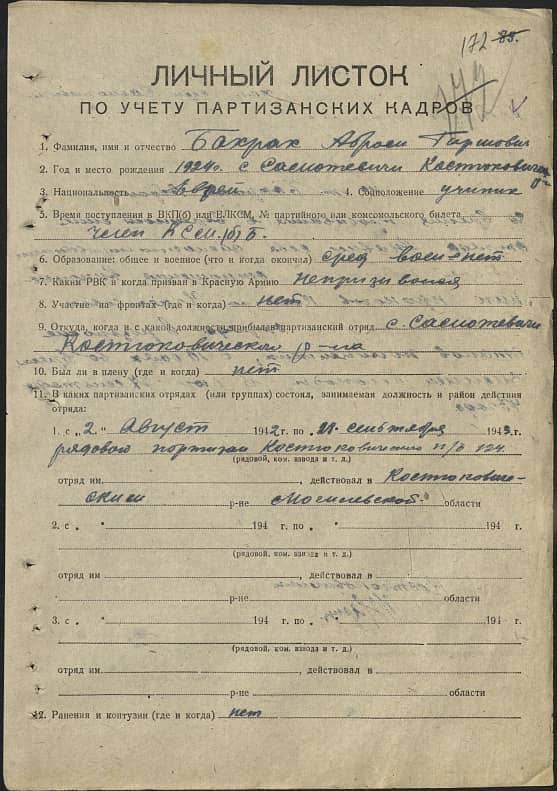 172 85.
172
ЛИЧНЫЙ ЛИСТОК
ПО УЧЕТУ ПАРТИЗАНСКИХ КАДРОВ
1. Фамилия, имя и отчество Бахрах
2. Год и место рождения 1924г. с Самотевичи Костюкович.
р-н
3. Национальность Еврей 4. Соцположение ученик
5. Время поступления в ВКП(б) или ВЛКСМ, № партийного или комсомольского билета
член
6. Образование: общее и военное (что и когда окончил) сред воен-нет
7. Каким РВК и когда призван в Красную Армию
8. Участие на фронтах (где и когда) нет
9. Откуда, когда и с какой должности прибыл в партизанский отряд с. Самотевичи
Костюковический р-на
10. Был ли в плену (где и когда) нет
11. В каких партизанских отрядах (или группах) состоял, занимаемая должность и район действия
отряда:
1. с „2„ Август 1942 г. по „28„ сентября 1943 г.
рядовой партизан Костюковический п/о 124.
(рядовой, ком. взвода и т. д.)
отряд им. , действовал в Костюкович-
ский р-не Могилевской области
2. с „ „ 194 г. по „ „ 194 г.
(рядовой, ком. взвода и т. д.)
отряд им. , действовал в
р-не области
3. с „ „ 194 г. по „ „ 194 г.
(рядовой, ком. взвода и т. д.)
отряд им. , действовал в
р-не области
12. Ранения и контузии (где и когда) нет